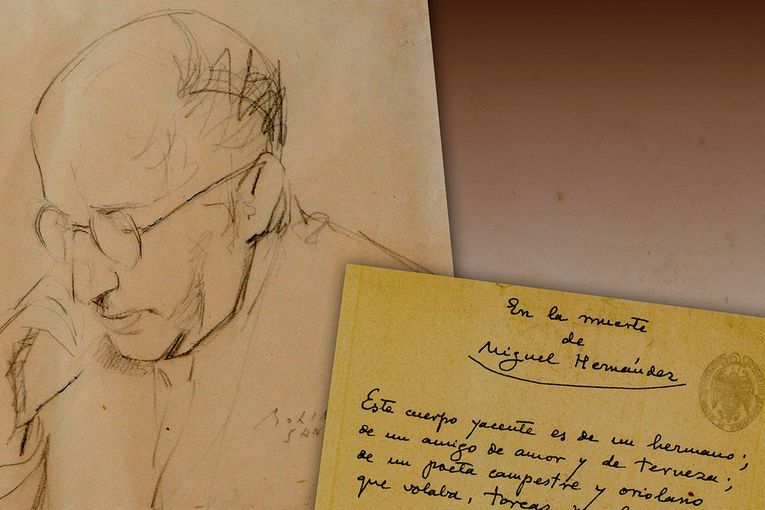 En la muerte
de
Miguel Hernández
Este cuerpo yacente es de un hermano;
de un amigo de amor y de terneza;
de un poeta campestre y oriolano
que volaba, torcaz